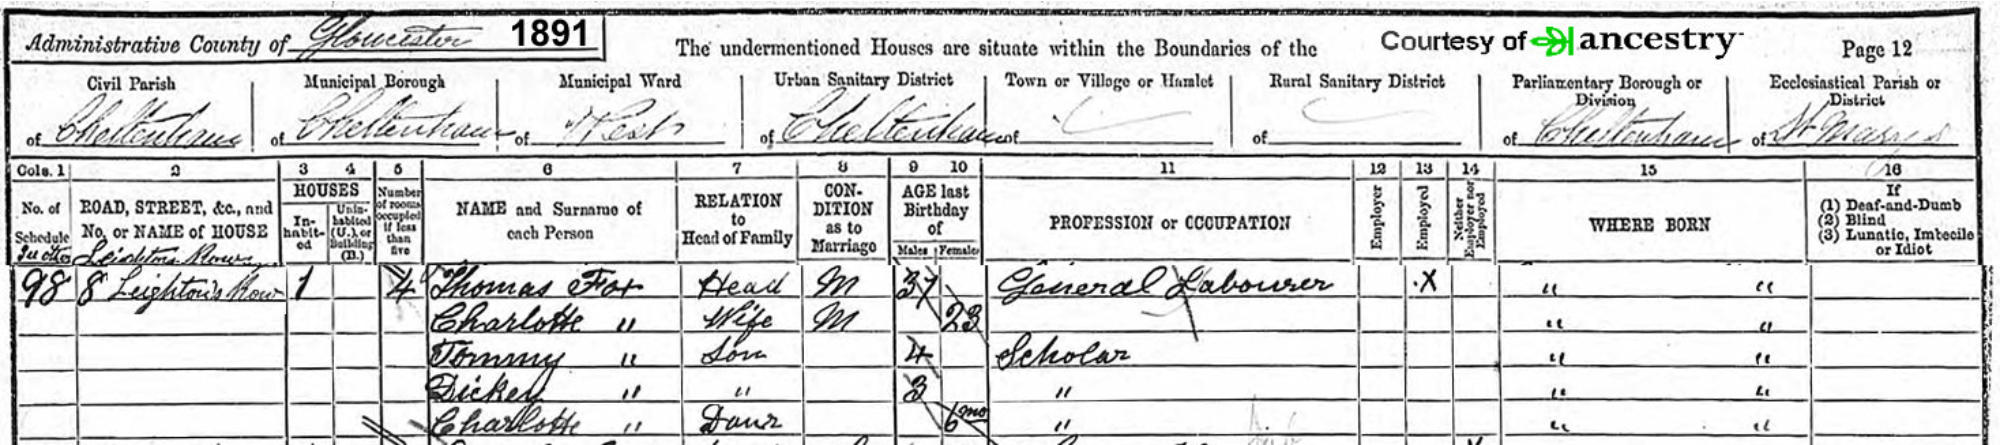 Administrative County of Gloucester 1891
The undermentioned Houses are situate within the Boundaries of the
Courtesy of ancestry
Page 12
Civil Parish of Cheltenham
Municipal Borough of Cheltenham
Municipal Ward of West
Urban Sanitary District of Cheltenham
Town or Village or Hamlet of
Rural Sanitary District of
Parliamentary Borough or Division of Cheltenham
Ecclesiastical Parish or District of St Mary's
Cols. 1 2 3 4 5 6 7 8 9 10 11 12 13 14 15 16
No. of Schedule
ROAD, STREET, &c., and No. or NAME of HOUSE
HOUSES
In-habit-ed
Unin-habited (U.), or Building (B.)
Number of rooms occupied if less than five
NAME and Surname of each Person
RELATION to Head of Family
CON-DITION as to Marriage
AGE last Birthday of
Males Females
PROFESSION or OCCUPATION
Employer
Employed
Neither Employer nor Employed
WHERE BORN
If
(1) Deaf-and-Dumb
(2) Blind
(3) Lunatic, Imbecile or Idiot
98 8 Leighton's Row 1 4 Thomas Fox Head M 37 General Labourer X " "
Charlotte " Wife M 23 " "
Tommy " Son 4 Scholar " "
Dickey " " 3 " " "
Charlotte " Daur 6 mo " " "